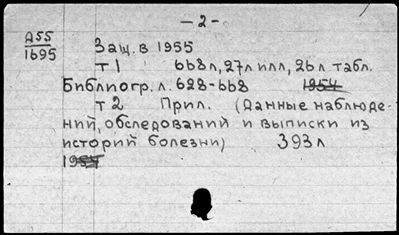 — 2 —
Д55
1695
Защ. в 1955
т 1 668 л, 27 л илл, 26 л табл.
Библиогр. л. 628-668 1954
т 2 Прил. (Данные наблюде-
ний, обследований и выписки из
историй болезни) 393 л
1954